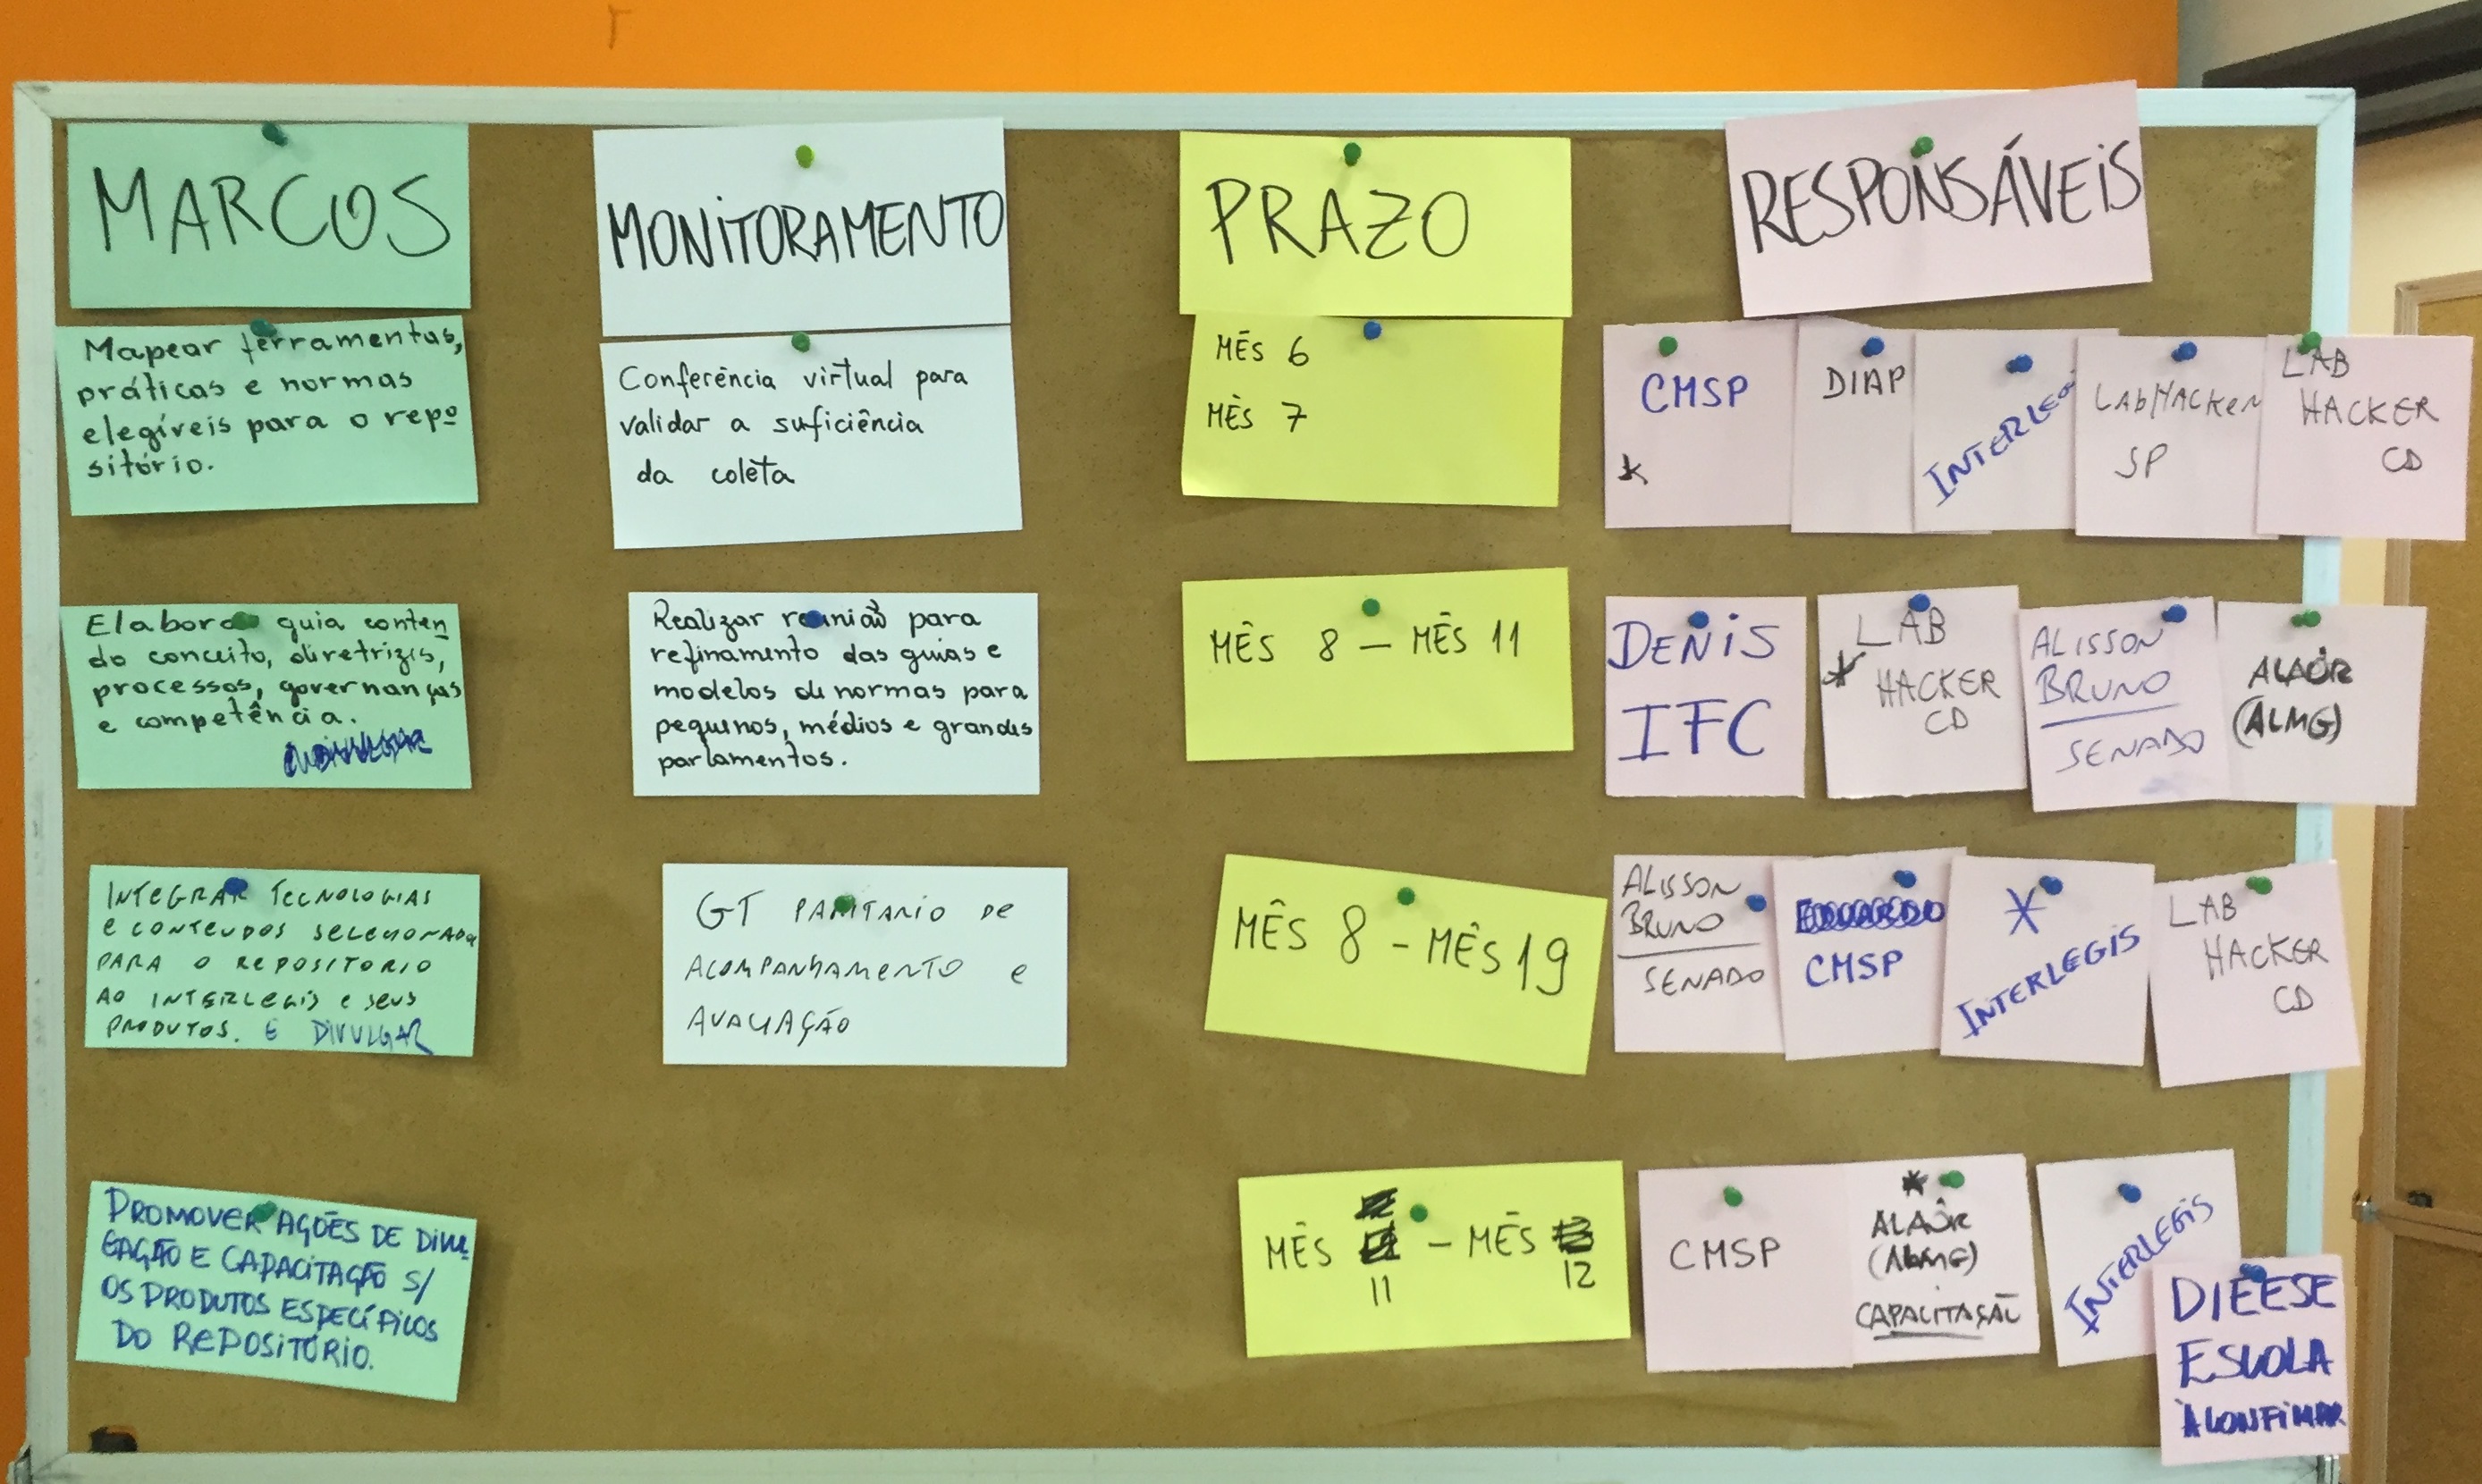 MARCOS
MONITORAMENTO
PRAZO
RESPONSÁVEIS
Mapear ferramentas,
práticas e normas
elegíveis para o repo
sitório.
Conferência virtual para
validar a suficiência
da coleta
MÊS 6
MÊS 7
CMSP
*
DIAP
INTERLEG
LABHACKER
SP
LAB
HACKER
CD
Elaborar guia conten
do conceito, diretrizes,
processos, governanças
e competência.
Realizar reunião para
refinamento das guias e
modelos de normas para
pequenos, médios e grandes
parlamentos.
MÊS 8 – MÊS 11
DENIS
IFC
LAB
* HACKER
CD
ALISSON
BRUNO
SENADO
ALAÔR
(ALMG)
INTEGRAR TECNOLOGIAS
E CONTEUDOS SELECIONADOS
PARA O REPOSITORIO
AO INTERLEGIS E SEUS
PRODUTOS. E DIVULGAR
GT PARITARIO DE
ACOMPANHAMENTO E
AVALIAÇÃO
MÊS 8 – MÊS 19
ALISSON
BRUNO
SENADO
EDUARDO
CMSP
*
INTERLEGIS
LAB
HACKER
CD
PROMOVER AÇÕES DE DIVUL
GAÇÃO E CAPACITAÇÃO S/
OS PRODUTOS ESPECÍFICOS
DO REPOSITÓRIO.
MÊS 11 – MÊS 12
CMSP
*
ALAÔR
(ALMG)
CAPACITAÇÃO
INTERLEGIS
DIEESE
ESCOLA
À CONFIMAR